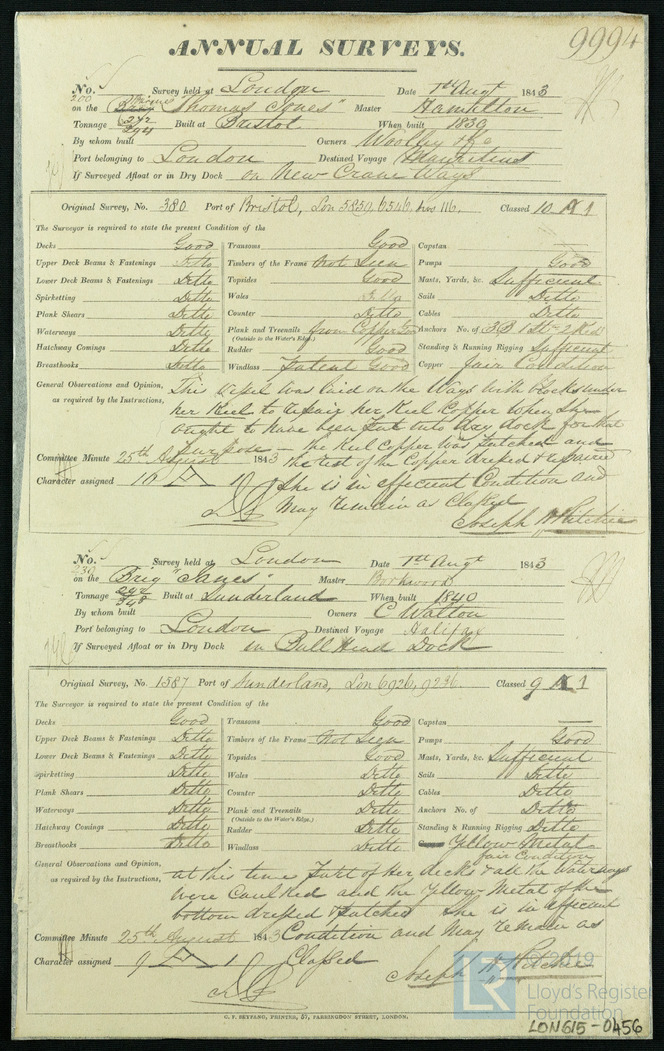 9994
ANNUAL SURVEYS.
No. 200 Survey held at London Date 1st Augt 1843
on the "Thomas Jones" Master Hamilton
Tonnage 242 294 Built at Bristol When built 1830
By whom built Owners Woolley & Co
Port belonging to London Destined Voyage Mauritius
If Surveyed Afloat or in Dry Dock on New Crane Ways
Original Survey, No. 380 Port of Bristol, Lon 5850, 6546, 116. Classed 10 A 1
The Surveyor is required to state the present Condition of the
Decks Good Transoms Good Capstan
Upper Deck Beams & Fastenings Ditto Timbers of the Frame Not Seen Pumps Good
Lower Deck Beams & Fastenings Ditto Topsides Good Masts, Yards, &c. Sufficient
Spirketting Ditto Wales Ditto Sails Ditto
Plank Shears Ditto Counter Ditto Cables Ditto
Waterways Ditto Plank and Treenails from Copper Good Anchors No. of 3B 1St 2Ked
(Outside to the Water's Edge.)
Hatchway Comings Ditto Rudder Good Standing & Running Rigging Sufficient
Breasthooks Ditto Windlass Patent Good Copper fair Condition
General Observations and Opinion, This vessel was laid on the Ways with blocks under
as required by the Instructions, her Keel to repair her Keel Copper when she
ought to have been put into Dry dock for that
purpose - the Keel Copper was patched and
Committee Minute 25th August 1843 the rest of the Copper dressed & repaired
Character assigned 10 A 1 She is in efficient Condition and
May remain as Classed
Joseph H Ritchie
No. 230 Survey held at London Date 1st Augt 1843
on the Brig "Janes" Master
Tonnage 348 Built at Sunderland When built 1840
By whom built Owners C Walton
Port belonging to London Destined Voyage Halifax
If Surveyed Afloat or in Dry Dock in Bull Head Dock
Original Survey, No. 1587 Port of Sunderland, Lon 6926, 9236 Classed 9 A 1
The Surveyor is required to state the present Condition of the
Decks Good Transoms Good Capstan
Upper Deck Beams & Fastenings Ditto Timbers of the Frame Not Seen Pumps Good
Lower Deck Beams & Fastenings Ditto Topsides Good Masts, Yards, &c. Sufficient
Spirketting Ditto Wales Ditto Sails Ditto
Plank Shears Ditto Counter Ditto Cables Ditto
Waterways Ditto Plank and Treenails Ditto Anchors No. of Ditto
(Outside to the Water's Edge.)
Hatchway Comings Ditto Rudder Ditto Standing & Running Rigging Ditto
Breasthooks Ditto Windlass Ditto Yellow Metal
fair Condition
General Observations and Opinion, at this time part of her decks & all the Waterways
as required by the Instructions, were Caulked and the Yellow Metal of the
bottom dressed & patched She is in efficient
Committee Minute 25th August 1843 Condition and may remain as
Character assigned 9 A 1 Classed
Joseph H Ritchie
G. F. SEYFANG, PRINTER, 57, FARRINGDON STREET, LONDON.
© 2019
LR
Lloyd's Register
Foundation
LON615-0456